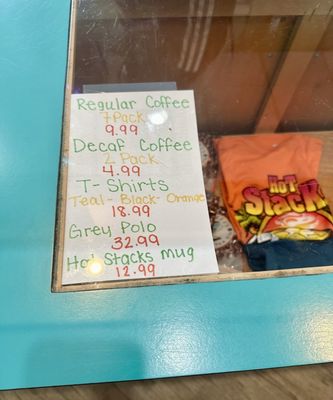 Regular Coffee
7 Pack
9.99
Decaf Coffee
2 Pack
4.99
T-Shirts
Teal-Black-Orange
18.99
Grey Polo
32.99
Hot Stacks Mug
12.99
HOT
StacK